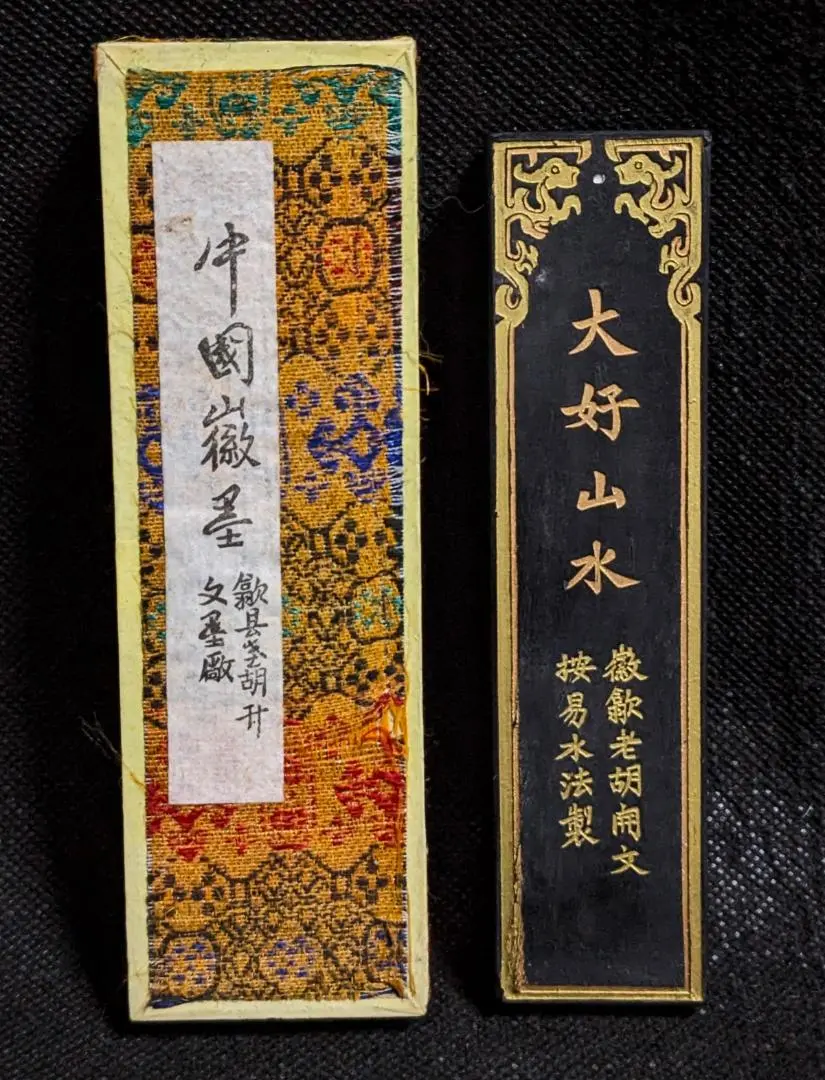 中國徽墨
歙县老胡开
文墨厰
大好山水
徽歙老胡開文
按易水法製